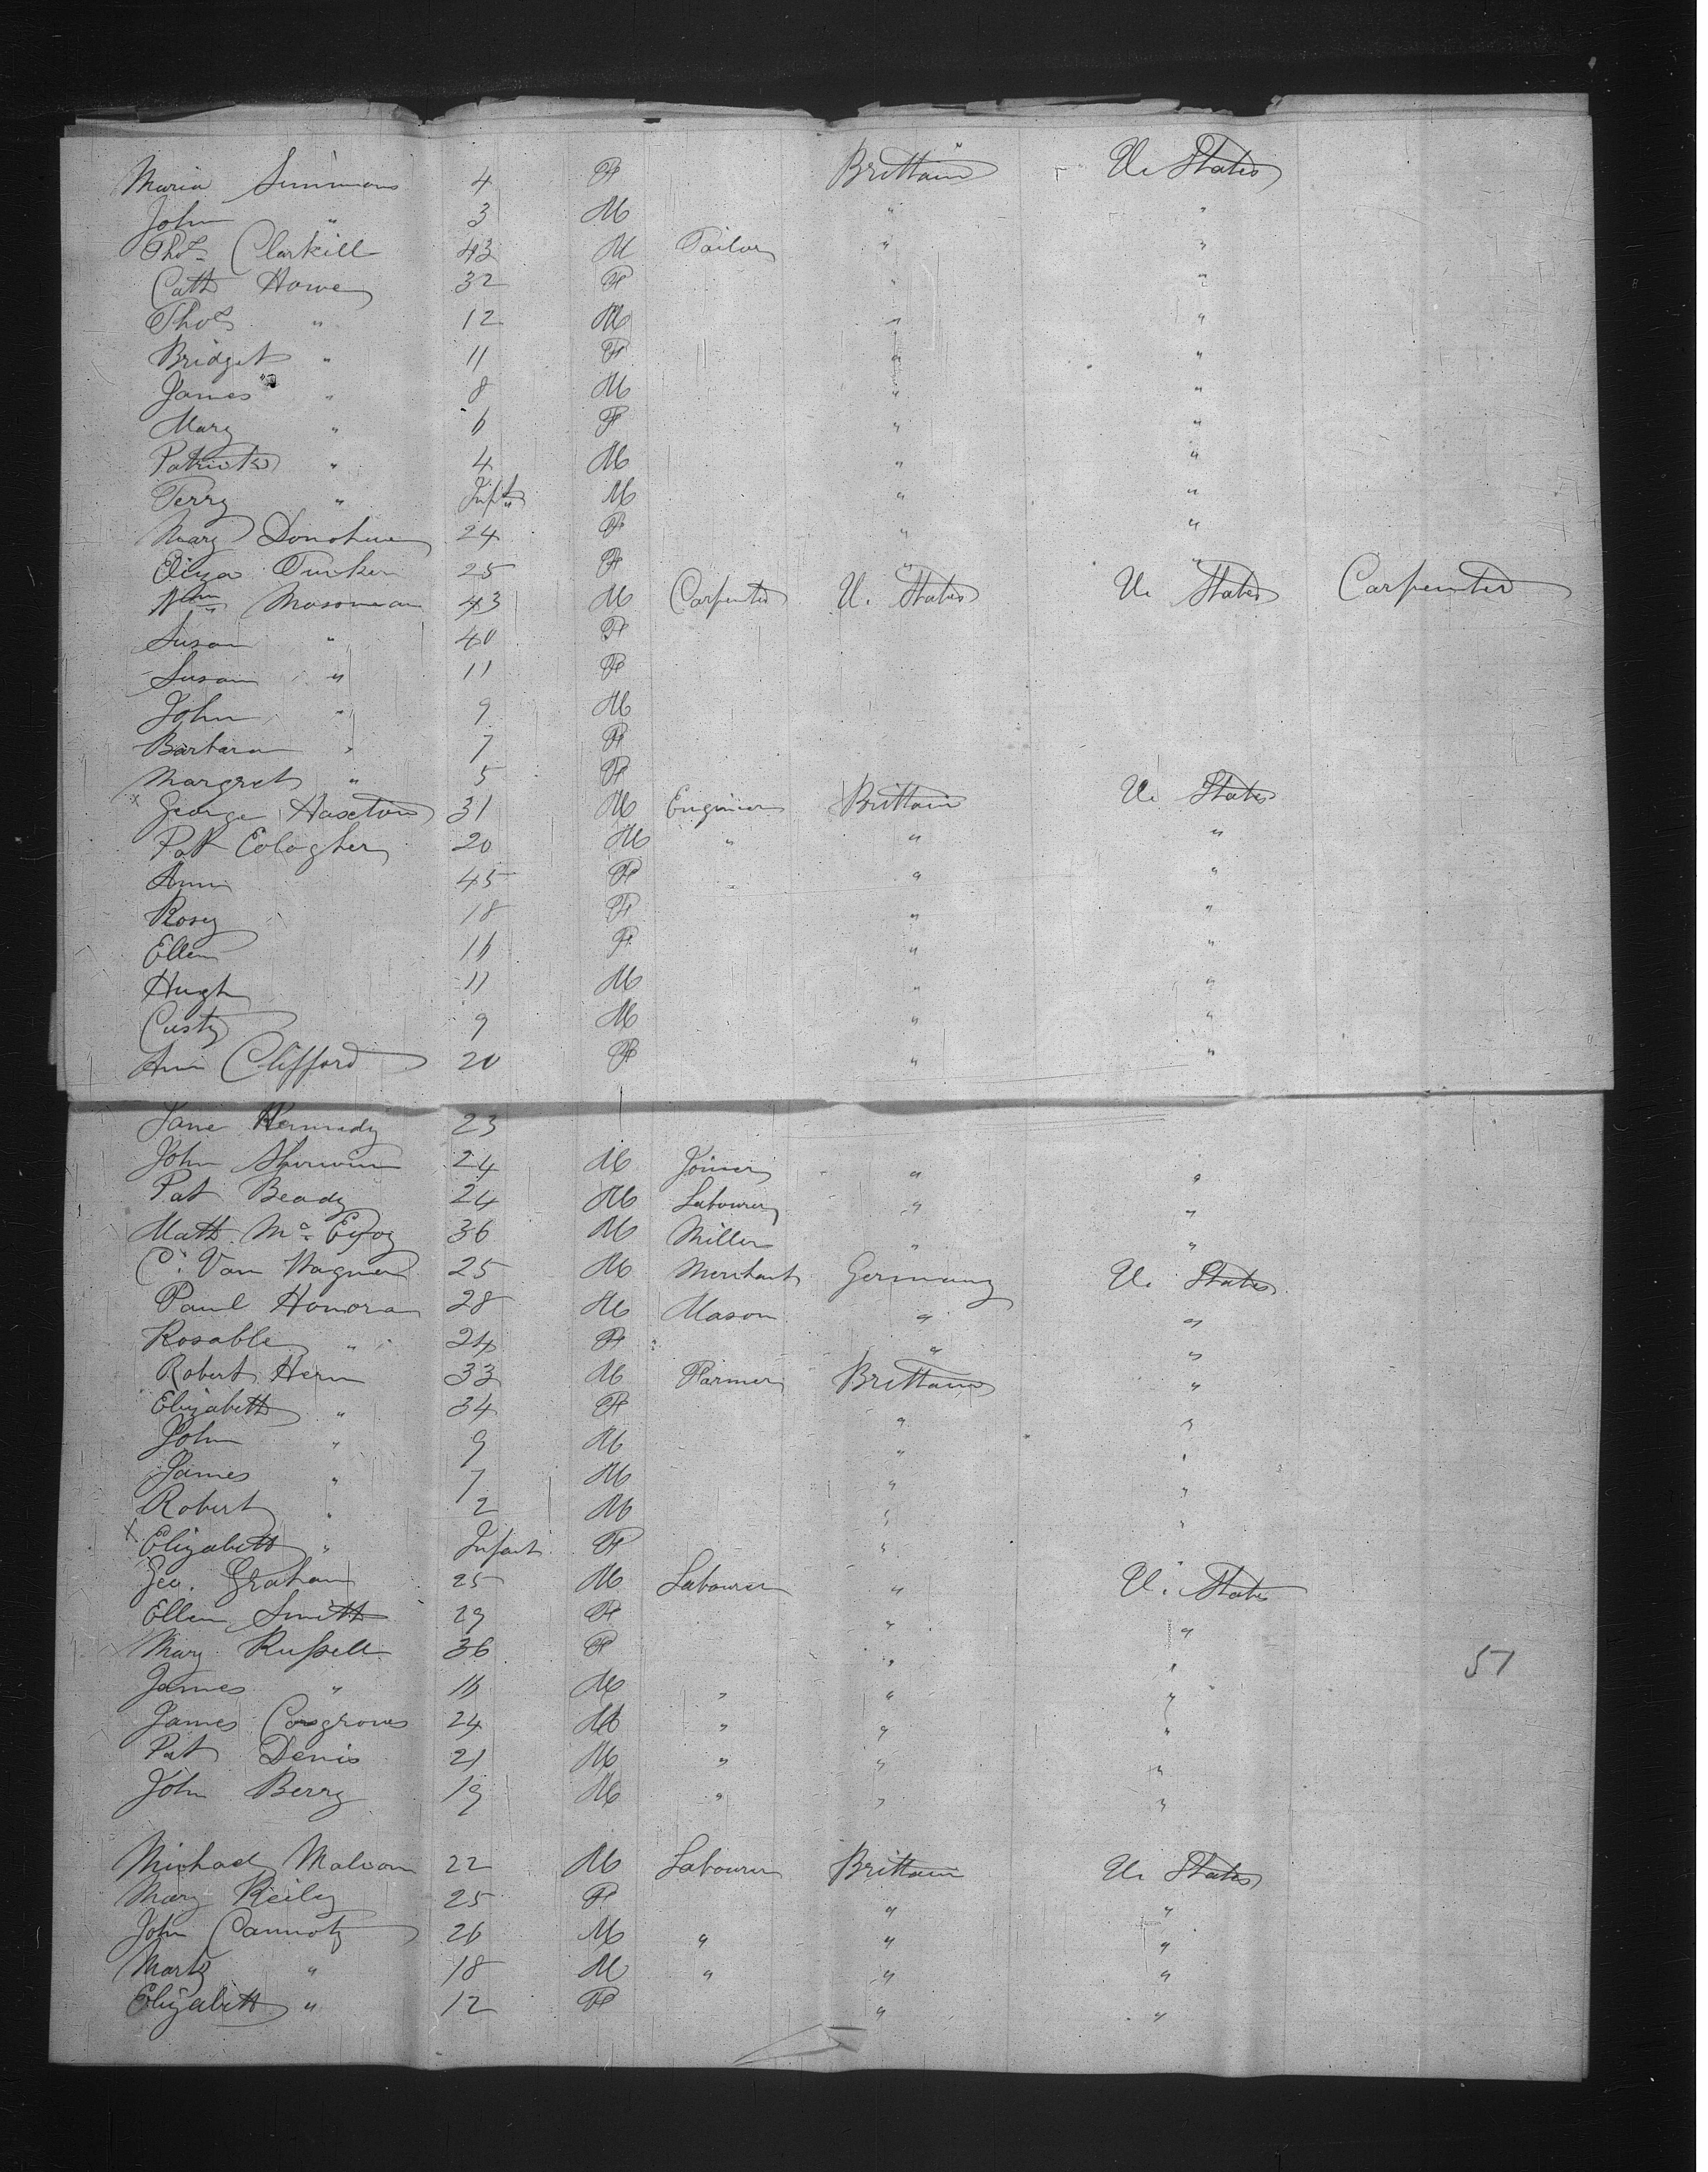 Maria Simmons 4 F Brittain U. States
John " 3 M " "
Thos Clarkill 43 M Tailor " "
Cath Howe 32 F " "
Thos " 12 M " "
Bridget " 11 F " "
James " 8 M " "
Mary " 6 F " "
Patrick " 4 M " "
Terry " Inft M " "
Mary Donohue 24 F " "
Eliza Tunker 25 F " "
Wm 43 M Carpenter U. States U. States Carpenter
Susan " 40 F
Susan " 11 F
John " 9 M
Barbara " 7 F
Margret " 5 F
x George Haxton 31 M Engineer Brittain U. States
Pat Cologher 20 M " " "
Ann 45 F " "
Rosy 18 F " "
Ellen 16 F " "
Hugh 11 M " "
Custy 9 M " "
Ann Clifford 20 F " "
Jane Kennedy 23
John Sherwin 24 M Joiner " "
Pat Beady 24 M Labourer " "
Math Mc Evoy 36 M Miller " "
C. Van Wagner 25 M Merchant Germany U. States
Paul Honora 28 M Mason " "
Rosable " 24 F " "
Robert Hern 33 M Farmer Brittain "
Elizabeth " 34 F " "
John " 9 M " "
James " 7 M " "
Robert " 2 M " "
x Elizabeth " Infant F "
Geo. Graham 25 M Labourer " U. States
Ellen Smith 29 F " "
Mary Russell 36 F " "
51
James " 16 M " " "
James Cosgroves 24 M " " "
Pat Denis 21 M " " "
John Berry 19 M " " "
Michael Malvon 22 M Labourer Brittain U. States
Mary Reily 25 F " "
John Cannoty 26 M " " "
Mark " 18 M " " "
Elizabeth " 12 F " "